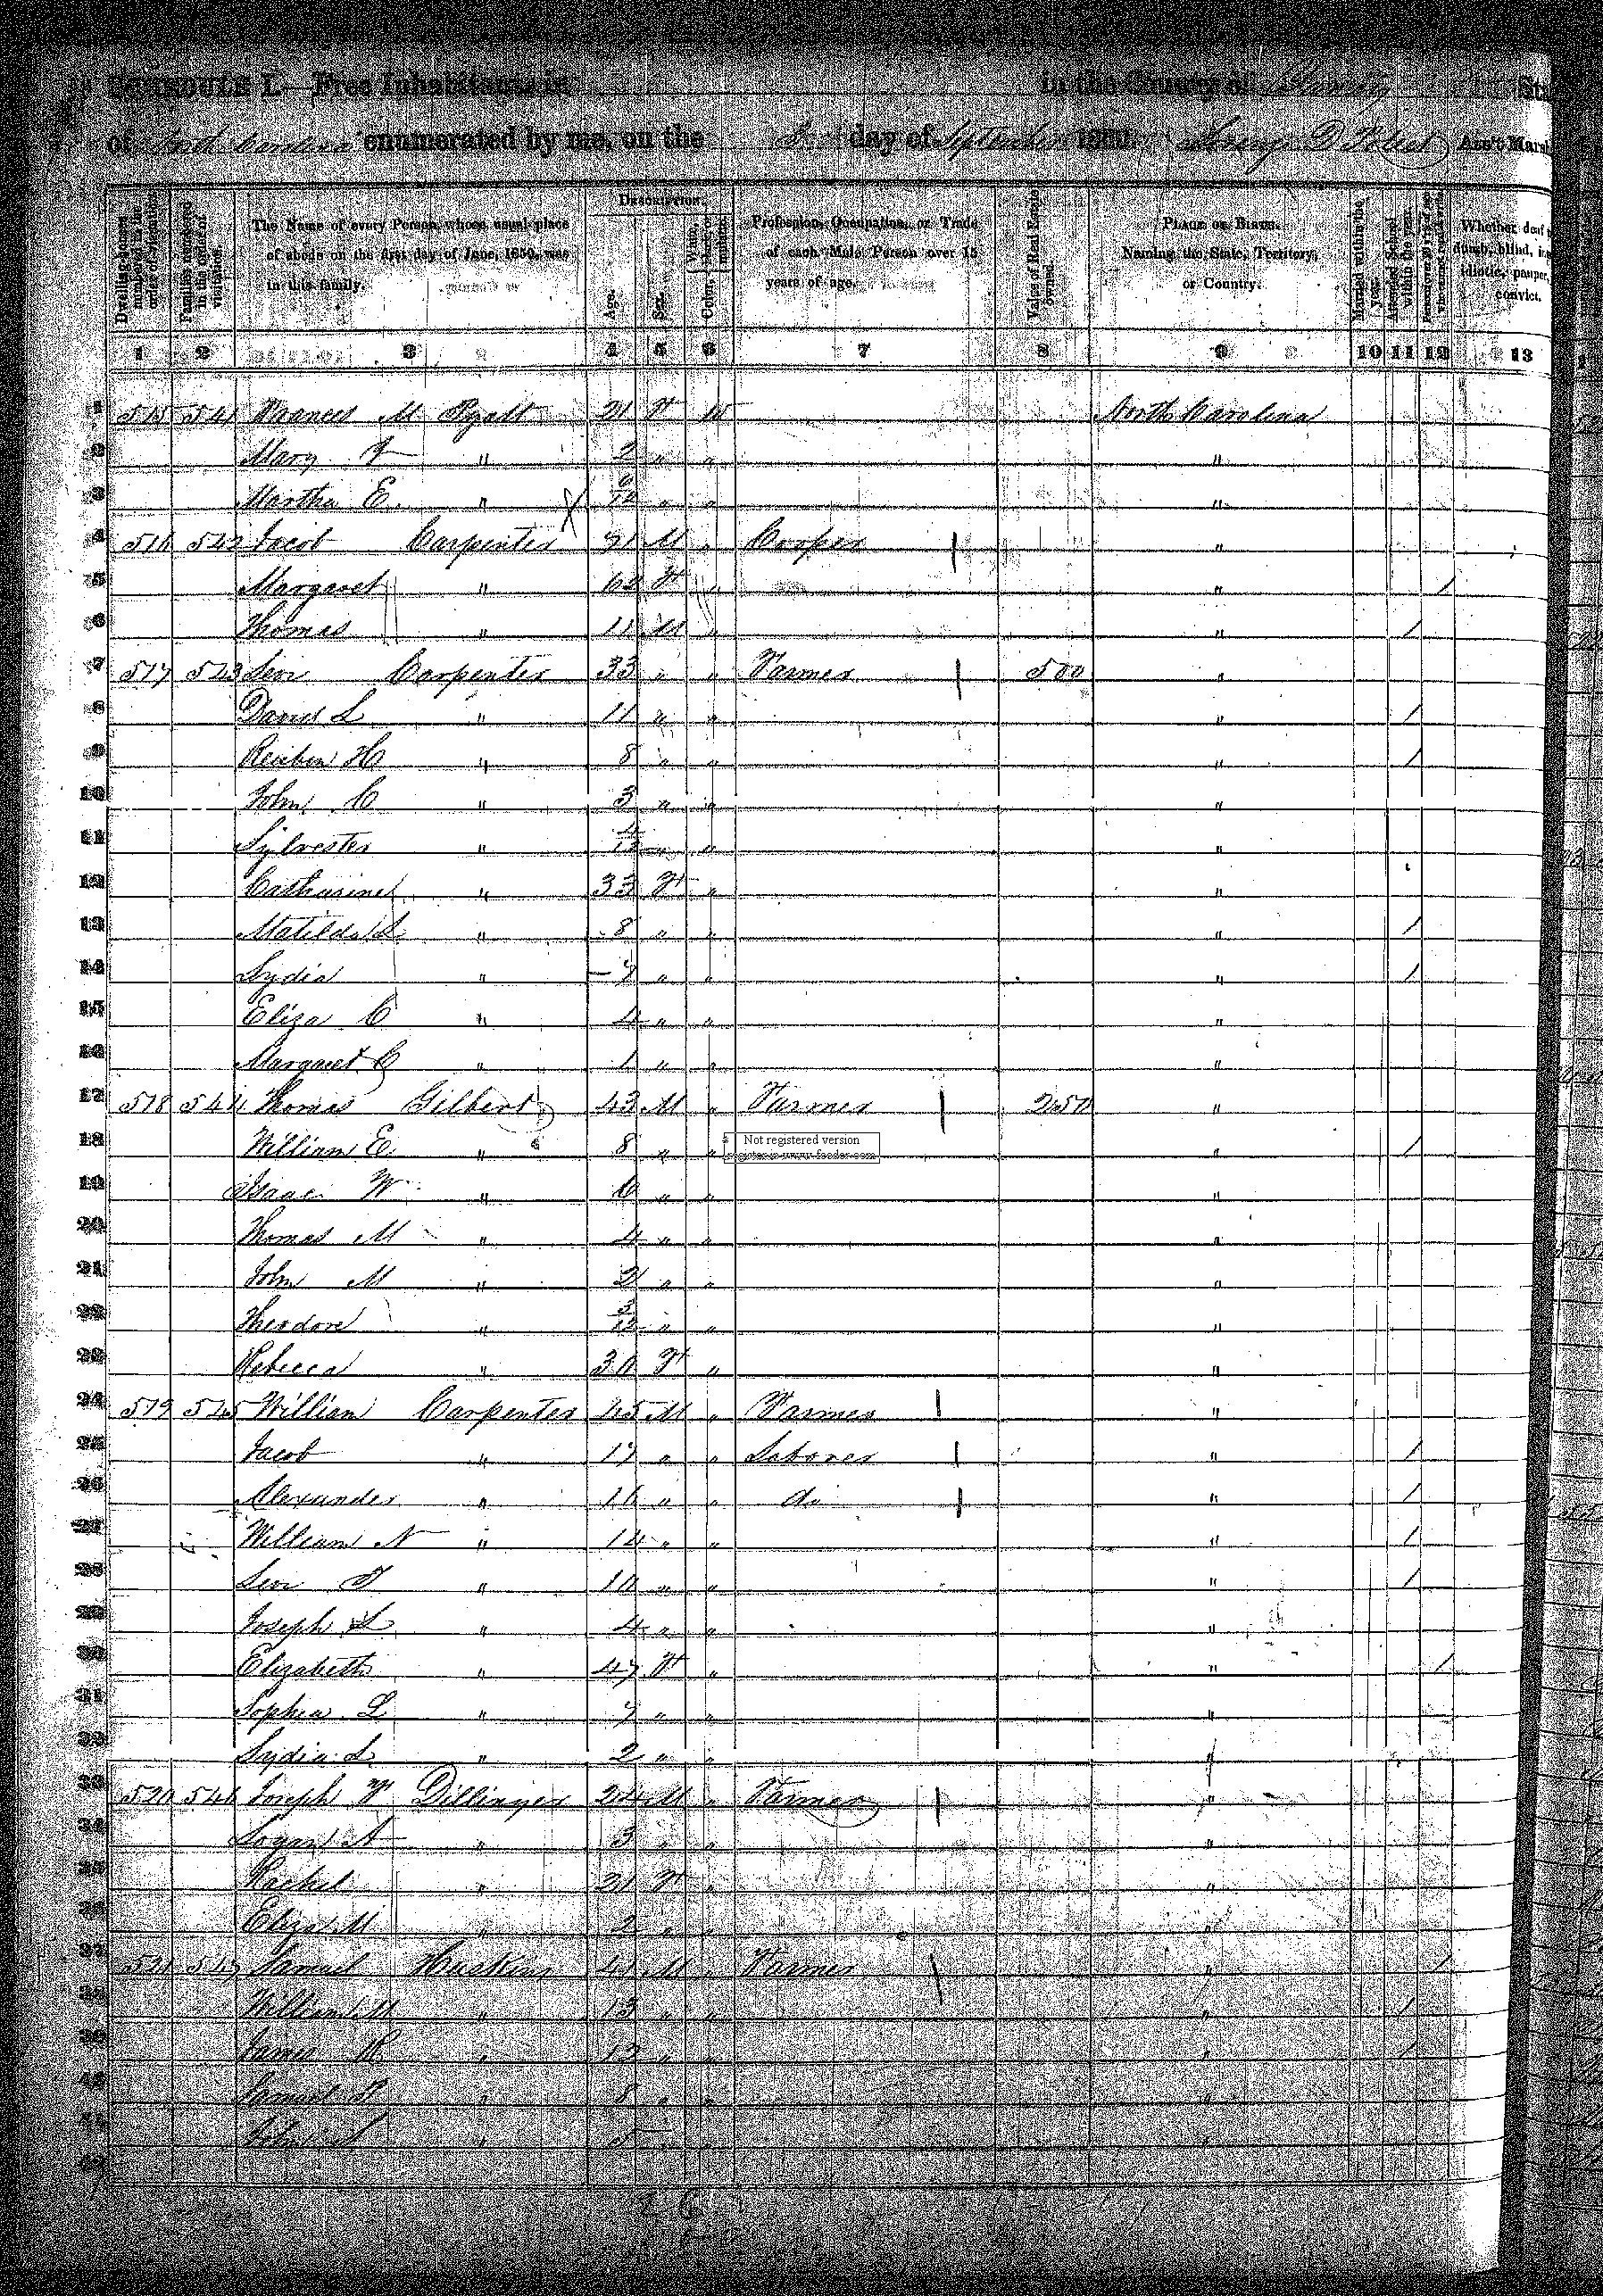 SCHEDULE I.—Free Inhabitants in in the County of
of North Carolina enumerated by me, on the day of September 1850. Ass't Marsh
Dwelling-houses numbered in the order of visitation.
Families numbered in the order of visitation.
The Name of every Person whose usual place of abode on the first day of June, 1850, was in this family.
DESCRIPTION.
Age.
Sex.
Color,
Profession, Occupation, or Trade of each Male Person over 15 years of age.
Value of Real Estate owned.
PLACE OF BIRTH. Naming the State, Territory, or Country.
Married within the year.
Attended School within the year.
Whether deaf dumb, blind, idiotic, pauper, convict.
1 2 3 4 5 6 7 8 9 10 11 12 13
1 515 541 Frances M Pyatt 21 F W North Carolina
2 Mary F " 2 " " "
3 Martha E. " 6/12 " " "
4 516 542 Jacob Carpenter 71 M " Cooper "
5 Margaret " 62 F " " /
6 Thomas " 11 M " " /
7 517 543 Levi Carpenter 33 " " Farmer 500 "
8 David L " 11 " " " /
9 Reuben H " 8 " " " /
10 John C " 3 " " "
11 Sylvester " 4/12 " " "
12 Catharine " 33 F " "
13 Matilda L " 8 " " " /
14 Lydia " 7 " " " /
15 Eliza C " 4 " " "
16 Margaret C " 1 " " "
17 518 544 Thomas Gilbert 43 M " Farmer 250 "
18 William E " 8 " " " /
Not registered version
19 Isaac W " 6 " " "
20 Thomas M " 4 " " "
21 John M " 2 " " "
22 Theodore " 3/12 " " "
23 Rebecca " 30 F " "
24 519 545 William Carpenter 45 M " Farmer "
25 Jacob " 17 " " Laborer " /
26 Alexander " 16 " " do " /
27 William N " 14 " " " /
28 Levi T " 10 " " " /
29 Joseph L " 4 " " "
30 Elizabeth " 47 F " " /
31 Sophia L " 7 " " "
32 Lydia L " 2 " " "
33 520 546 Joseph F Dillinger 24 M " Farmer "
34 Logan A " 3 " " "
35 Rachel " 21 F " "
36 Eliza M " 2 " " "
37 521 547 Samuel Huskins 41 M " Farmer " /
38 William M " 13 " " " /
39 James R " 12 " " " /
40 Samuel " 8 " " "
41 " 5 "
42